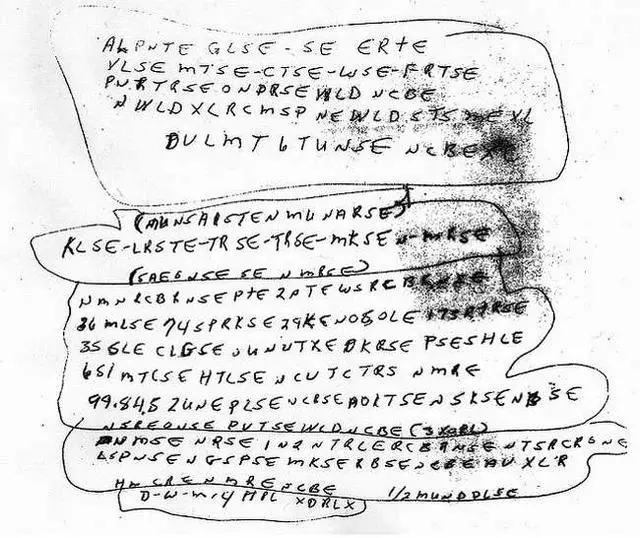 ALPNTE GLSE-SE ERTE
VLSE MTSE-CTSE-WSE-FRTSE
PNRTRSE ONDRSE WLD NCBE
NWLD XLRCMSP NEWLD STS ME XL
DULMT 6 TUNSE NCBE XE
(MUNSARSTEN MUNARSE)
KLSE-LRSTE-TRSE-TRSE-MKSEN-MRSE
(SAEGNSE SE N MRSE)
NMNRCBRNSE PTE 2 PTE WSRCBRNSE
36 MLSE 74 SPRKSE 29KENOSOLE 173RTRSE
35 GLE CLGSE UNUTXE DKRSE PSESHLE
651 MTCSE HTLSE NCUTCTRS NMRE
99.84.5 ZUNE PLSE NCRSE AORTSE NSKSE NBSE
NSREONSE PUTSE WLD NCBE (3 XORL)
NMSE NRSE IN2 NTRLERCBRNSE NTSRCRONE
LSPNSE NGSPSE MKSERBSE NCBE AUXLR
HMCRE NMRE NCBE 1/2 MUNDDLSE
D-W-M-4 MPL XDRLX